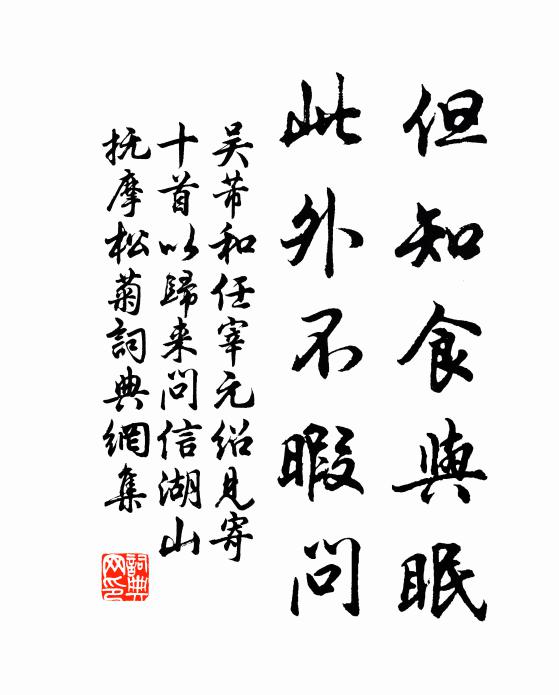 但知食與眠
此外不暇問
吴芾和任宰元绍見寄
十首以歸来问信湖山
抚摩松菊詞典網集
詞典网印